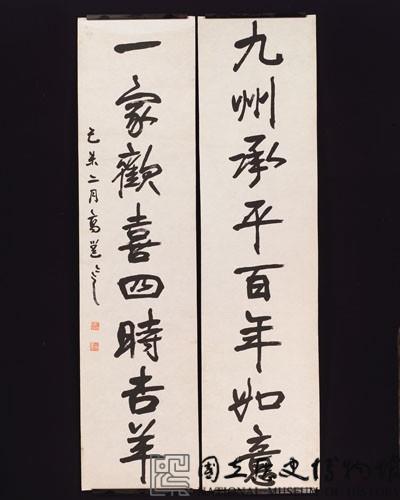 九州承平百年如意
一家歡喜四時吉羊
己未二月高逸鴻
國立歷史博物館
NATIONAL MUSEUM